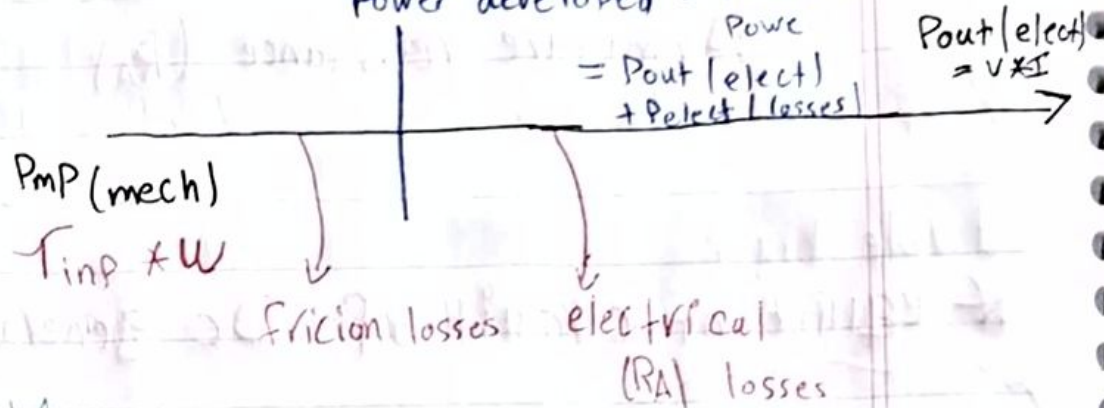 Power developed
Powe
= Pout (elect)
+ Pelect (losses)
Pout (elect)
= V*I
Pmp (mech)
Tinp * W
fricion losses
electrical
(RA) losses